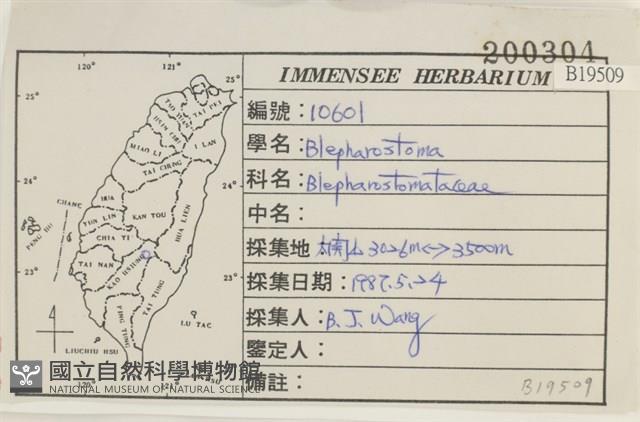 200304
IMMENSEE HERBARIUM
B19509
編號：10601
學名：Blepharostoma
科名：Blepharostomataceae
中名：
採集地 3026m<->3500m
採集日期：1987.5.24
採集人：B. J. Wang
鑒定人：
備註：
B19509
120° 121°
25° 25°
TAO YUAN
TAI PEI
HSIN CHU
MIAO LI
I LAN
TAI CHUNG
24° 24°
CHANG HUA
NAN TOU
HUA LIEN
YUN LIN
PENG HU
CHIA YI
TAI NAN
KAO HSIUNG
23° 23°
TAI TUNG
PING TUNG
LU TAO
LIUCHIU HSU
120° 121°
國立自然科學博物館
NATIONAL MUSEUM OF NATURAL SCIENCE